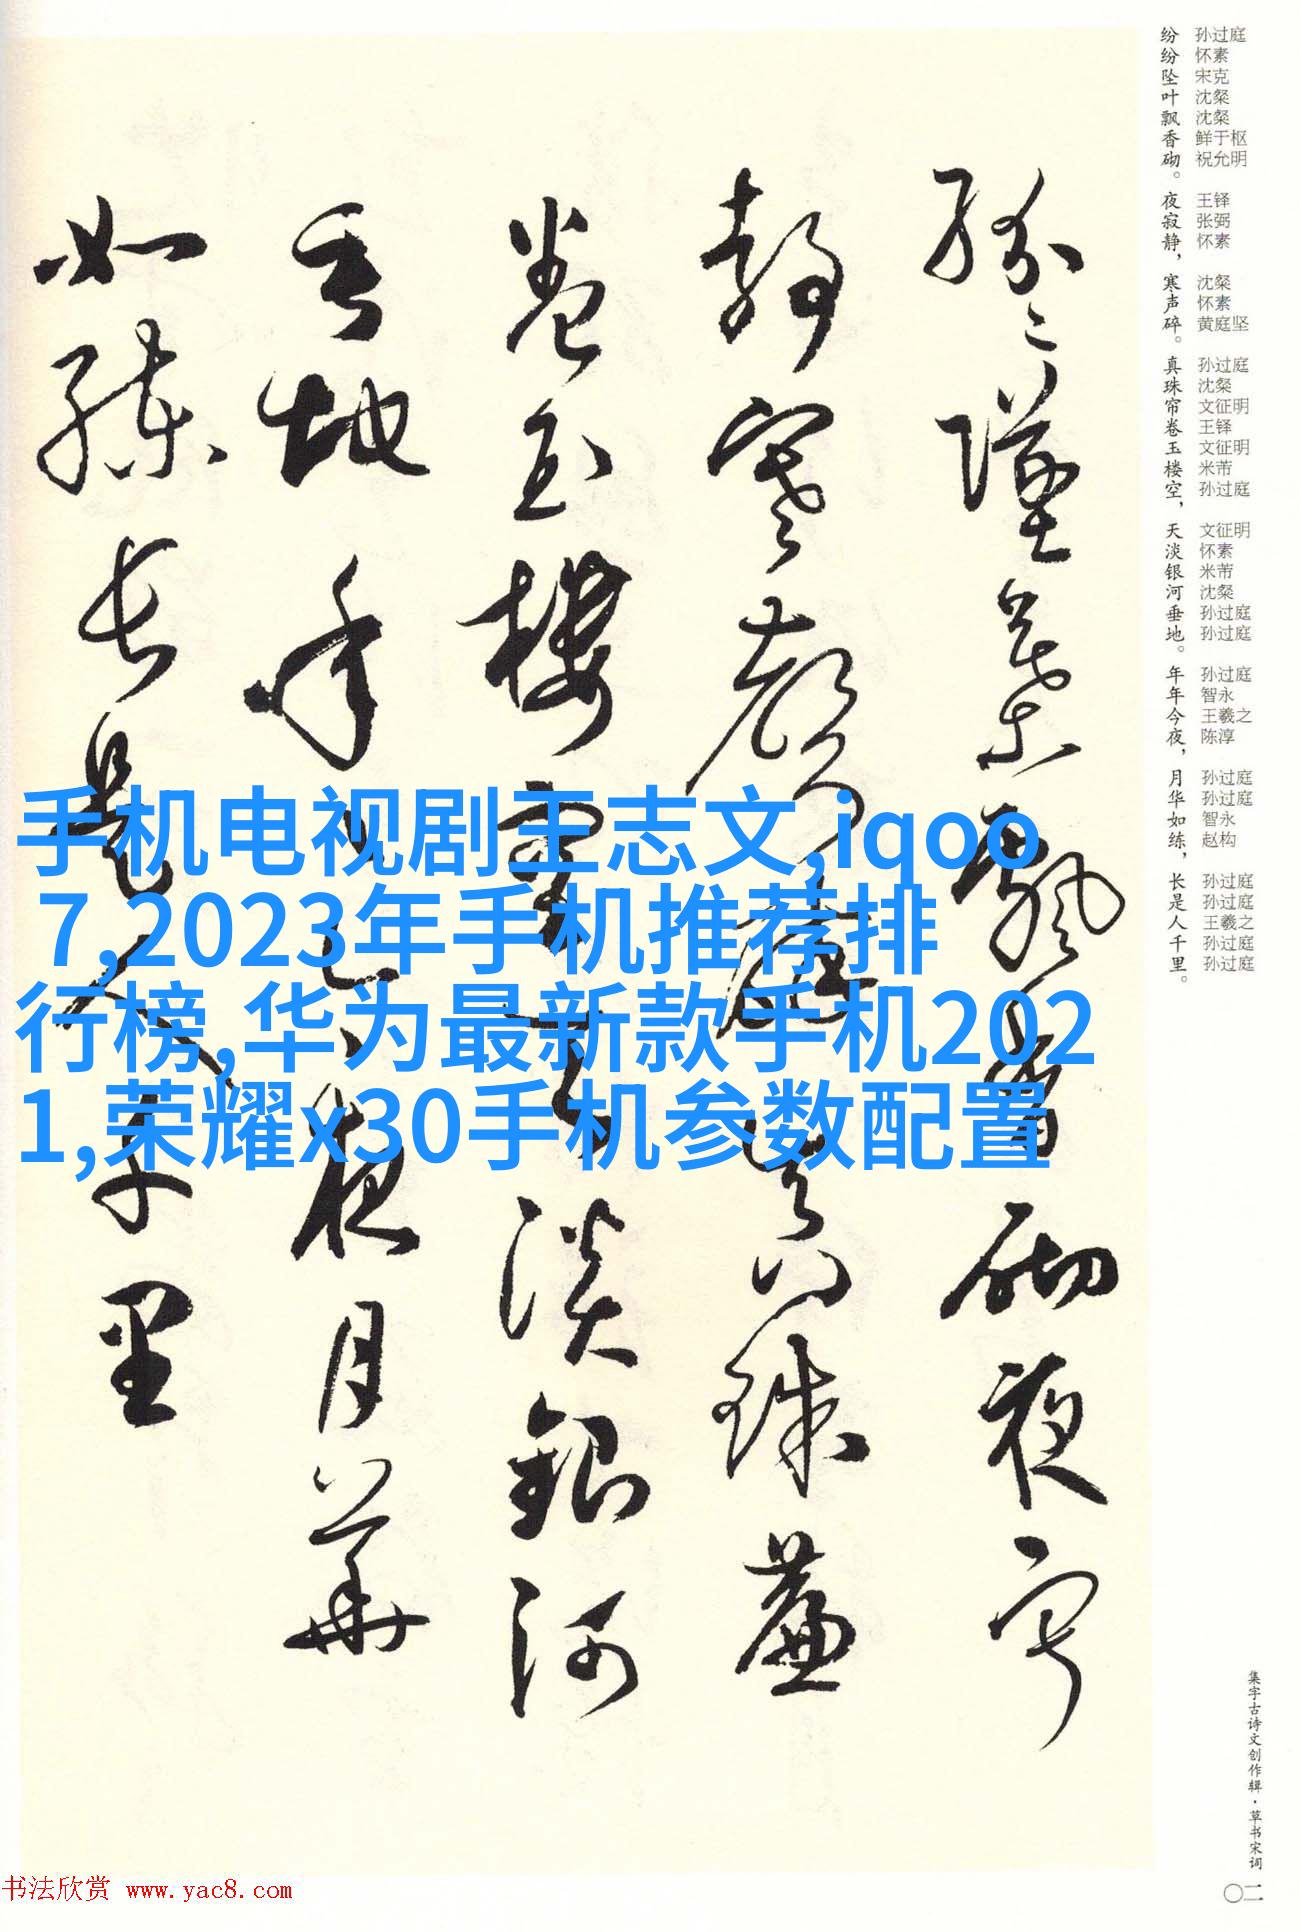 纷纷坠叶飘香砌。夜寂静，寒声碎。真珠帘卷玉楼空，天淡银河垂地。年年今夜，月华如练，长是人千里。
孙过庭
怀素
宋克
沈粲
沈粲
鲜于枢
祝允明
王铎
张弼
怀素
沈粲
怀素
黄庭坚
孙过庭
沈粲
文征明
王铎
文征明
米芾
孙过庭
文征明
怀素
米芾
沈粲
孙过庭
孙过庭
孙过庭
智永
王羲之
陈淳
孙过庭
孙过庭
智永
赵构
孙过庭
孙过庭
王羲之
孙过庭
孙过庭
纷〻坠叶飘香砌夜寂
静寒声碎真珠帘
卷玉楼空天淡银河
垂地年〻今夜月华
如练长是人千里
手机电视剧王志文,iqoo
7,2023年手机推荐排
行榜,华为最新款手机202
1,荣耀x30手机参数配置
集字古诗文创作辑·草书宋词
〇二
书法欣赏 www.yac8.com